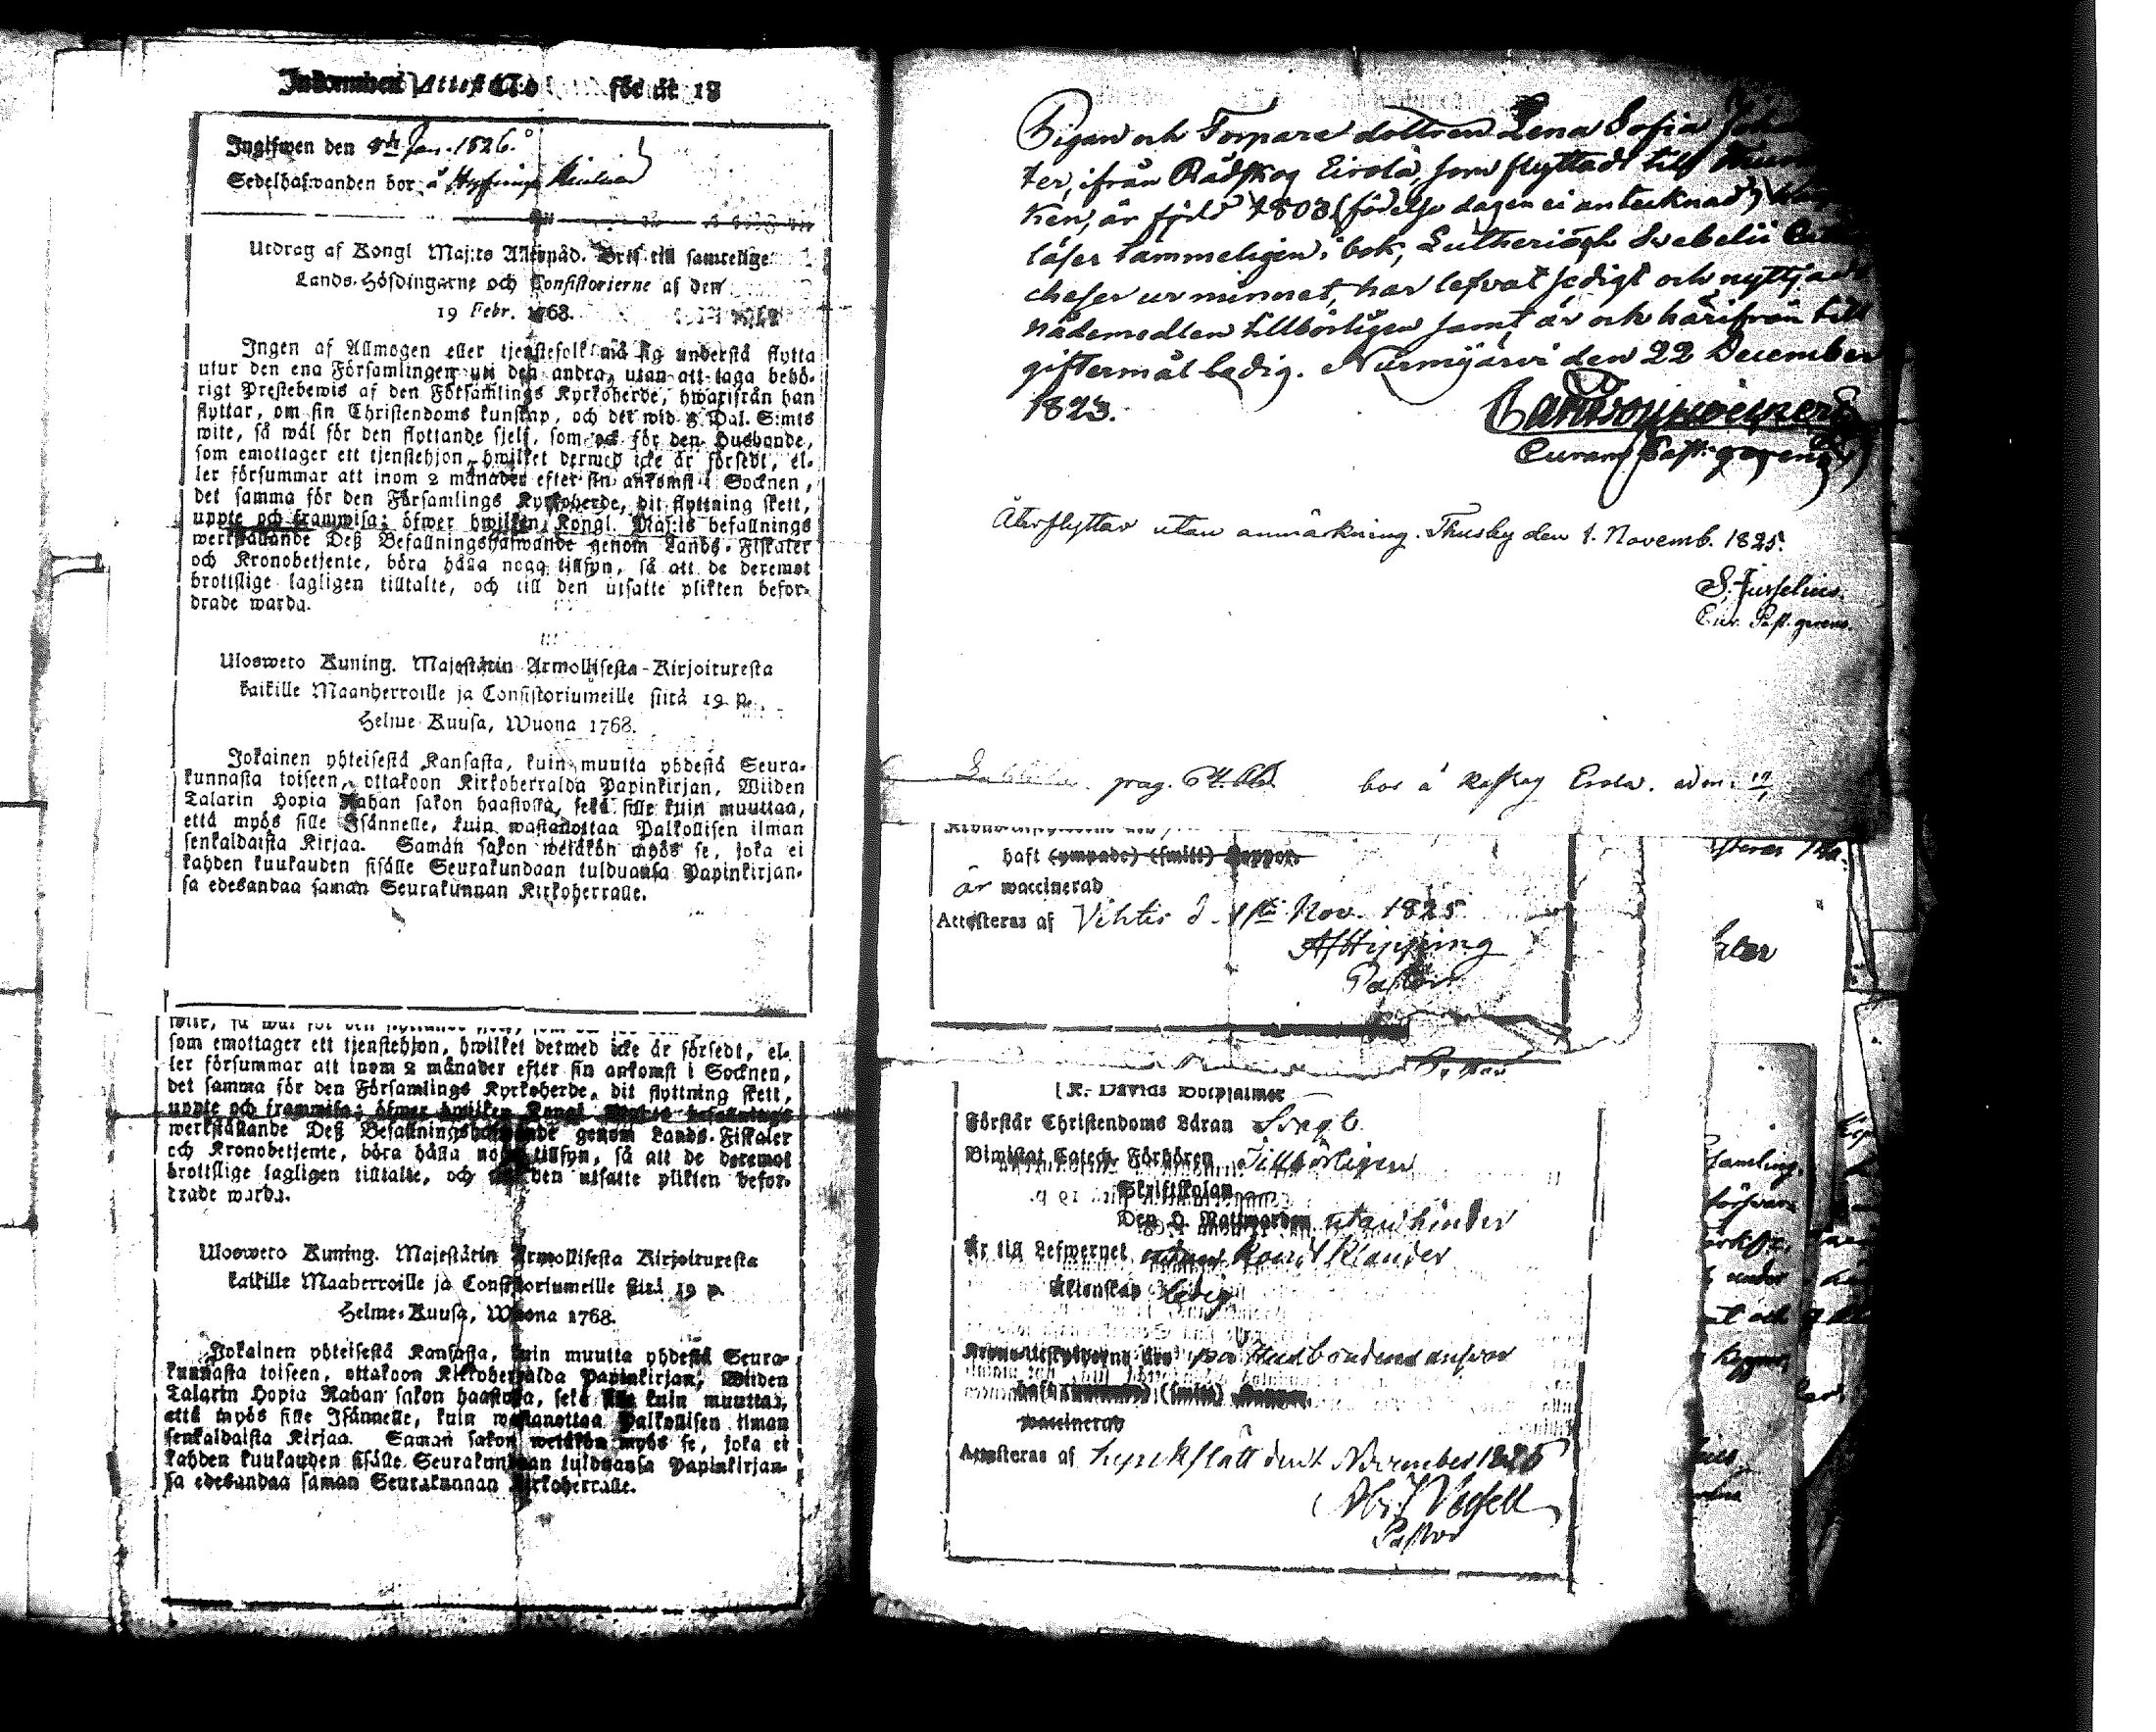 för år 18
Inglfwen den 8de Jan. 1826.
Sedelhafwanden bor å
Utdrag af Kongl Maj:ts Allernåd. Bref till samtelige
Lands-Höfdingarne och Consistorierne af den
19 Febr. 1768.
Ingen af Allmogen eller tjenstefolk må sig understå flytta
utur den ena Församlingen uti den andra, utan att taga behö-
rigt Prestebewis af den Församlings Kyrkoherde, hwarifrån han
flyttar, om sin Christendoms kunskap, och det wid 5 Dal. S:mts
wite, så wäl för den flyttande sjelf, som ock för den Husbonde,
som emottager ett tjenstehjon, hwilket dermed icke är försedt, el-
ler försummar att inom 2 månader efter sin ankomst i Socknen,
det samma för den Församlings Kyrkoherde, dit flyttning skett,
uppte och framwisa; öfwer hwilken Kongl. Maj:ts befallnings
werkställande Deß Befallningshafwande genom Lands-Fiskaler
och Kronobetjente, böra hålla noga tillsyn, så att de deremot
brottslige lagligen tilltalte, och till den utsatte plikten befor-
drade warda.
Ulosweto Kuning. Majestätin Armollisesta-Kirjoituresta
kaikille Maanherroille ja Consistoriumeille siitä 19 p.
Helme-Kuusa, Wuona 1768.
Jokainen yhteisestä Kansasta, kuin muutta yhdestä Seura-
kunnasta toiseen, ottakoon Kirkoherralda Papinkirjan, Wiiden
Talarin Hopia Rahan sakon haastolla, sekä sille kuin muuttaa,
että myös sille Isännelle, kuin wastanottaa Palkollisen ilman
senkaldaista Kirjaa. Samän sakon wetäkön myös se, joka ei
kahden kuukauden sisälle Seurakundaan tulduansa Papinkirjan-
sa edesandaa saman Seurakunnan Kirkoherralle.
som emottager ett tjenstehjon, hwilket dermed icke är försedt, el-
ler försummar att inom 2 månader efter sin ankomst i Socknen,
det samma för den Församlings Kyrkoherde, dit flyttning skett,
uppte och framwisa; öfwer hwilken Kongl. Maj:ts befallnings
werkställande Deß Befallningshafwande genom Lands-Fiskaler
och Kronobetjente, böra hålla noga tillsyn, så att de deremot
brottslige lagligen tilltalte, och till den utsatte plikten befor-
drade warda.
Ulosweto Kuning. Majestätin Armollisesta Kirjoituresta
kaikille Maaherroille ja Consistoriumeille siitä 19 p.
Helme-Kuusa, Wuona 1768.
Jokainen yhteisestä Kansasta, kuin muutta yhdestä Seura-
kunnasta toiseen, ottakoon Kirkoherralda Papinkirjan, Wiiden
Talarin Hopia Rahan sakon haastolla, sekä sille kuin muuttaa,
että myös sille Isännelle, kuin wastanottaa Palkollisen ilman
senkaldaista Kirjaa. Samän sakon wetäkön myös se, joka ei
kahden kuukauden sisälle Seurakundaan tulduansa Papinkirjan-
sa edesandaa saman Seurakunnan Kirkoherralle.
Pigan och Torpare dottren Lena Sofia
ter, ifrån Rådskog Eirola, som flyttade till
ken, är född 1803 (födelse dagen ei antecknad)
läser tämmeligen i bok, Lutheri och Svebelii
cheser ur minnet, har lefvat sedigt och nyttjadt
nådemedlen tillbörligen samt är och härifrån till
giftermål ledig. Nurmijärvi den 22 December
1823.
Curam Past. gerens
Återflyttar utan anmärkning. Thusby den 1. Novemb. 1825.
S. Juselius.
Cur. Past. gerens.
pag. bor å Råskog Erola.
haft (ympade) (smitt) Koppor
är waccinerad
Attesteras af Vihtis d. 1ste Nov. 1825
AfHipping
Pastor
K. Davids Botpsalmer
Förstår Christendoms Läran
Biwistat Catech. Förhören Tillbörligen
Skriftskolan
Den H. Nattwarden utan hinder
Är till Lefwernet utan kändt klander
Äktenskap ledig
på Husbondens ansvar
(smitt) Koppor
waccinerad
Attesteras af Kyrckslätt den 1 November 1825
Pastor